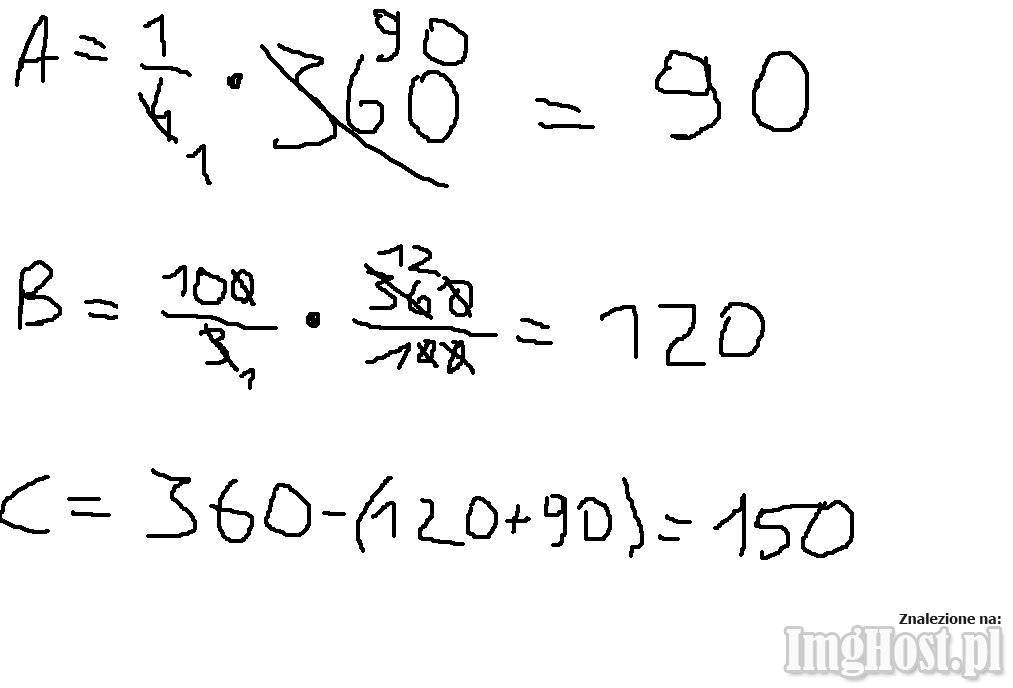 A = 1/4 1 · 360 90 = 90
B = 100/3 1 · 360 12/100 = 120
C = 360 - (120 + 90) = 150
Znalezione na:
ImgHost.pl